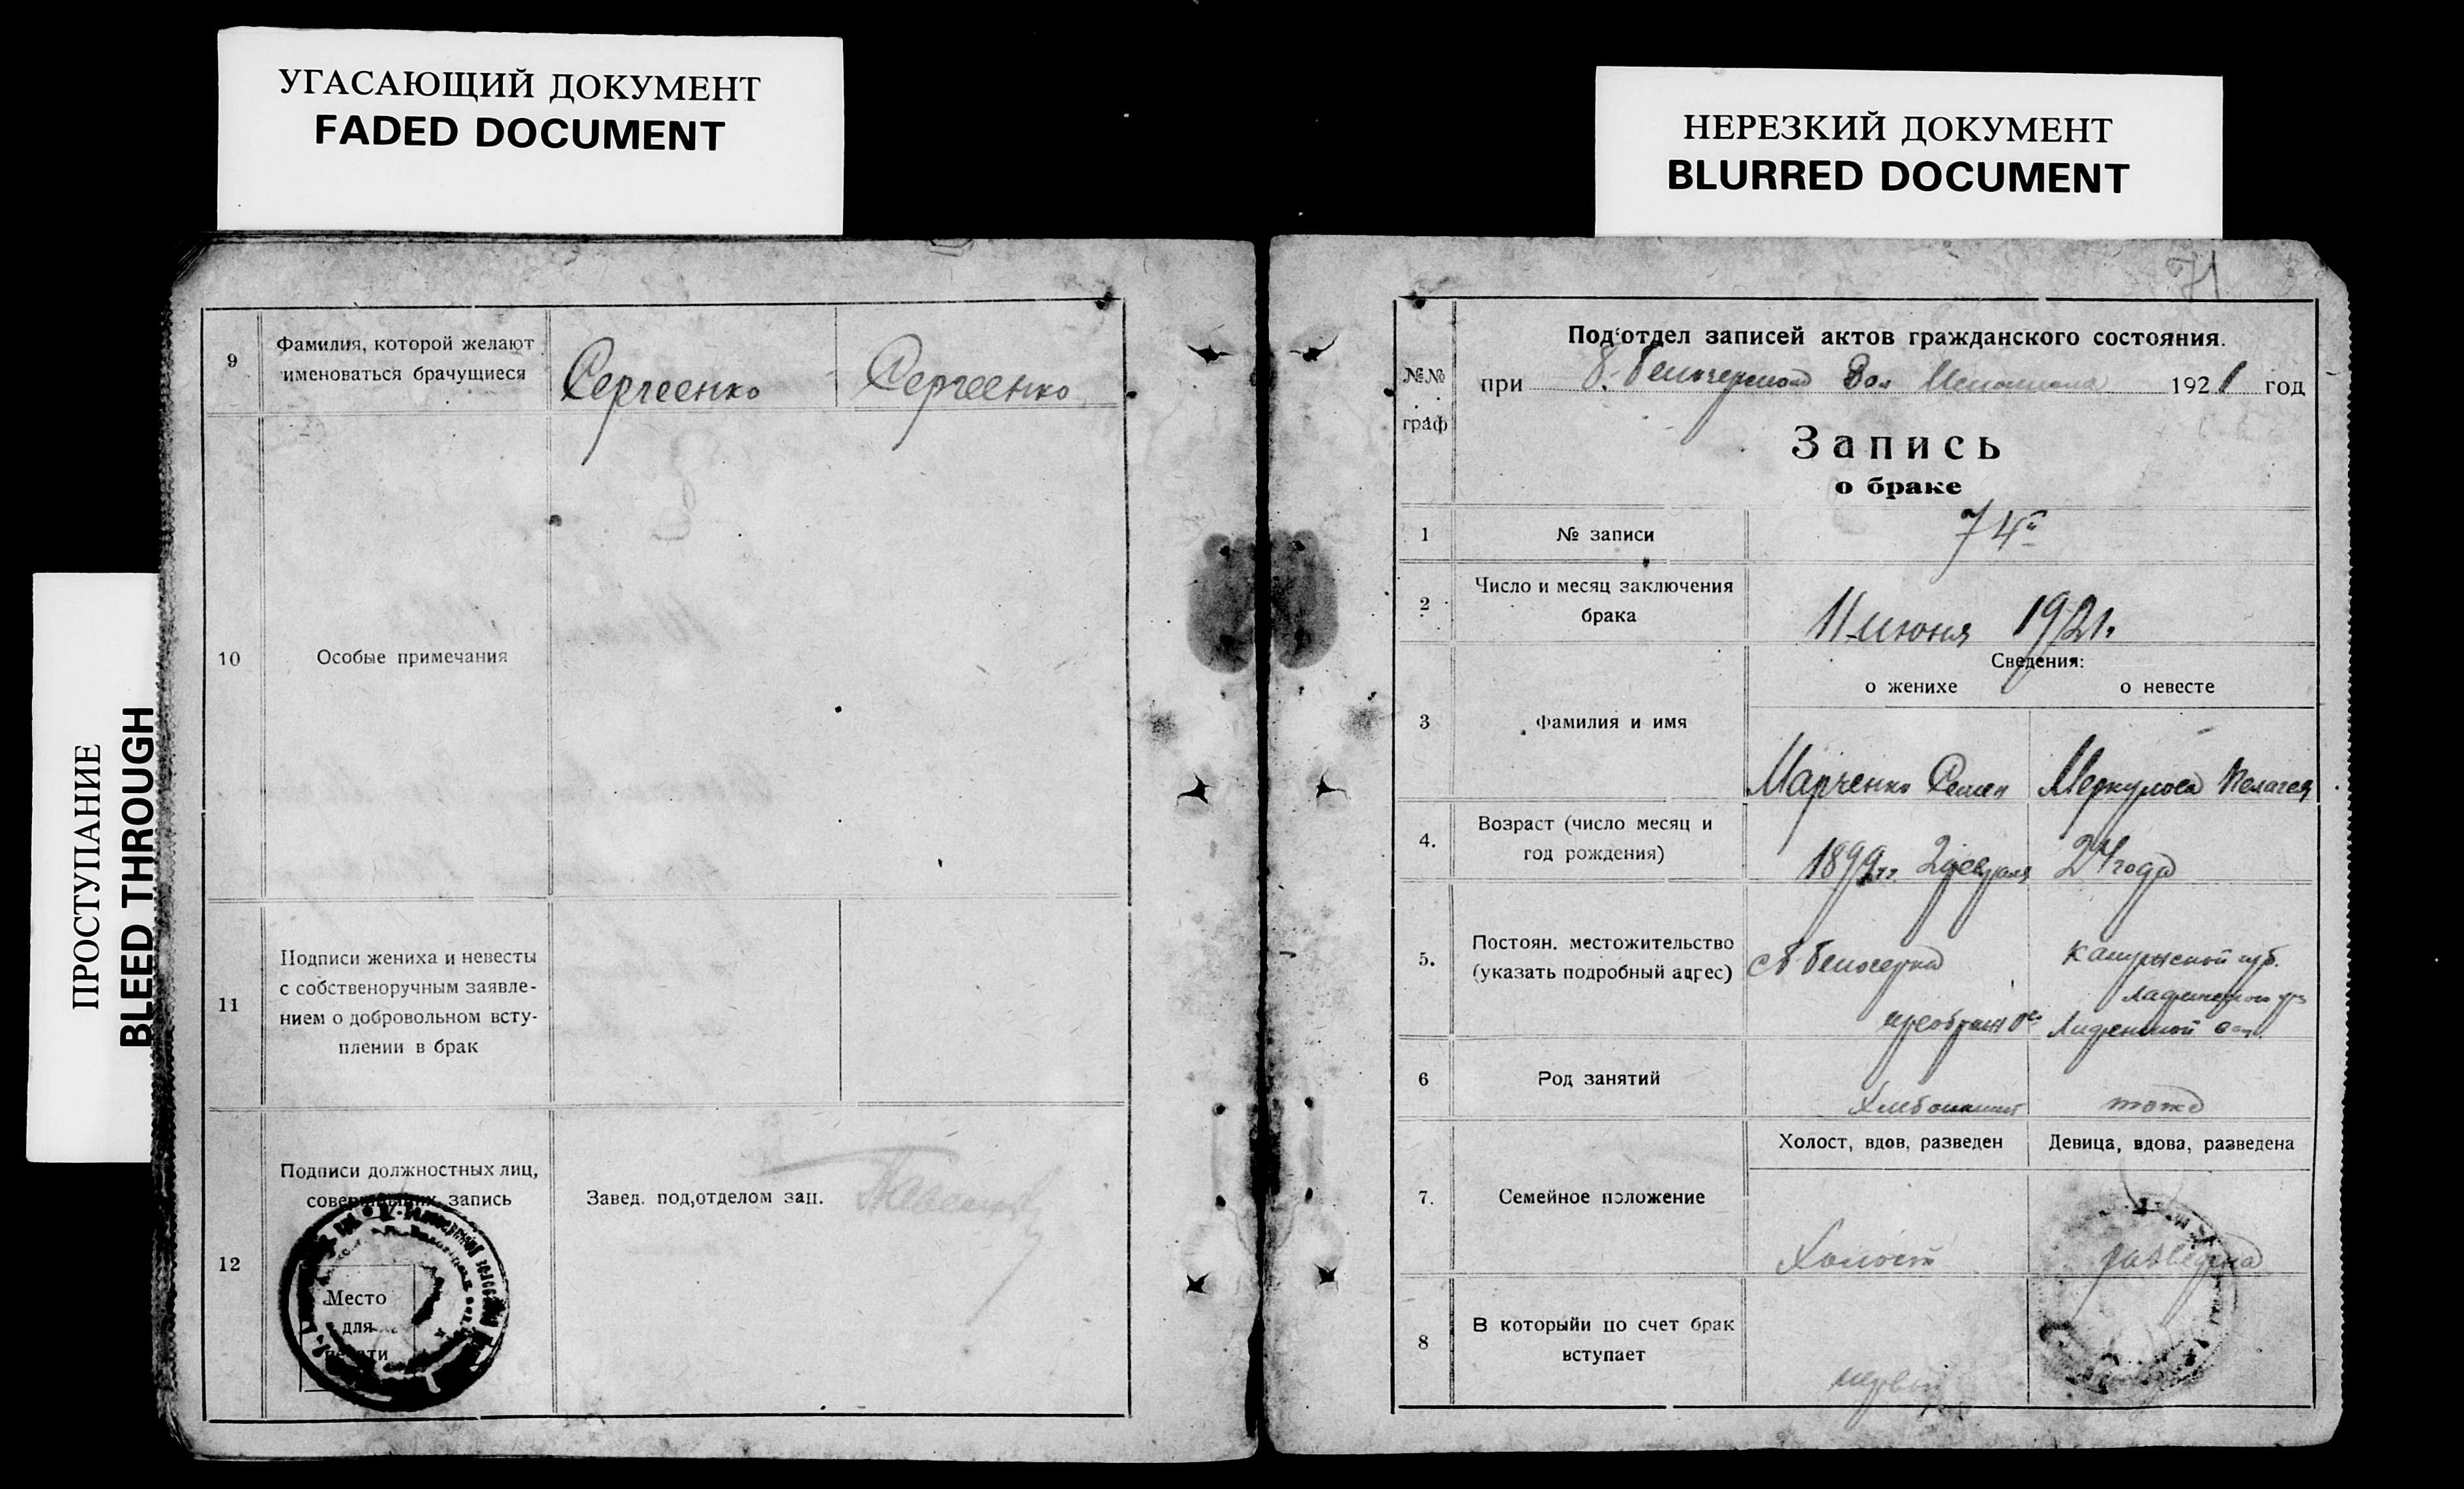 УГАСАЮЩИЙ ДОКУМЕНТ
FADED DOCUMENT
НЕРЕЗКИЙ ДОКУМЕНТ
BLURRED DOCUMENT
ПРОСТУПАНИЕ
BLEED THROUGH
9
Фамилия, которой желают
именоваться брачущиеся
Сергеенко
Сергеенко
10
Особые примечания
11
Подписи жениха и невесты
с собственоручным заявле-
нием о добровольном всту-
плении в брак
12
Подписи должностных лиц,
запись
Завед. под,отделом зап.
Место
для
печати
71
№№
граф
Под‘отдел записей актов гражданского состояния.
при Вол 1921 год
Запись
о браке
1
№ записи
74
2
Число и месяц заключения
брака
11 июня 1921.
Сведения:
о женихе
о невесте
3
Фамилия и имя
Марченко Семен
Меркулова Пелагея
4.
Возраст (число месяц и
год рождения)
1899 г. 2 февраля
24 года
5.
Постоян. местожительство
(указать подробный адрес)
губ.
6
Род занятий
тоже
Холост, вдов, разведен
Девица, вдова, разведена
7.
Семейное положение
Холост
разведена
8
В которыйи по счет брак
вступает
первый